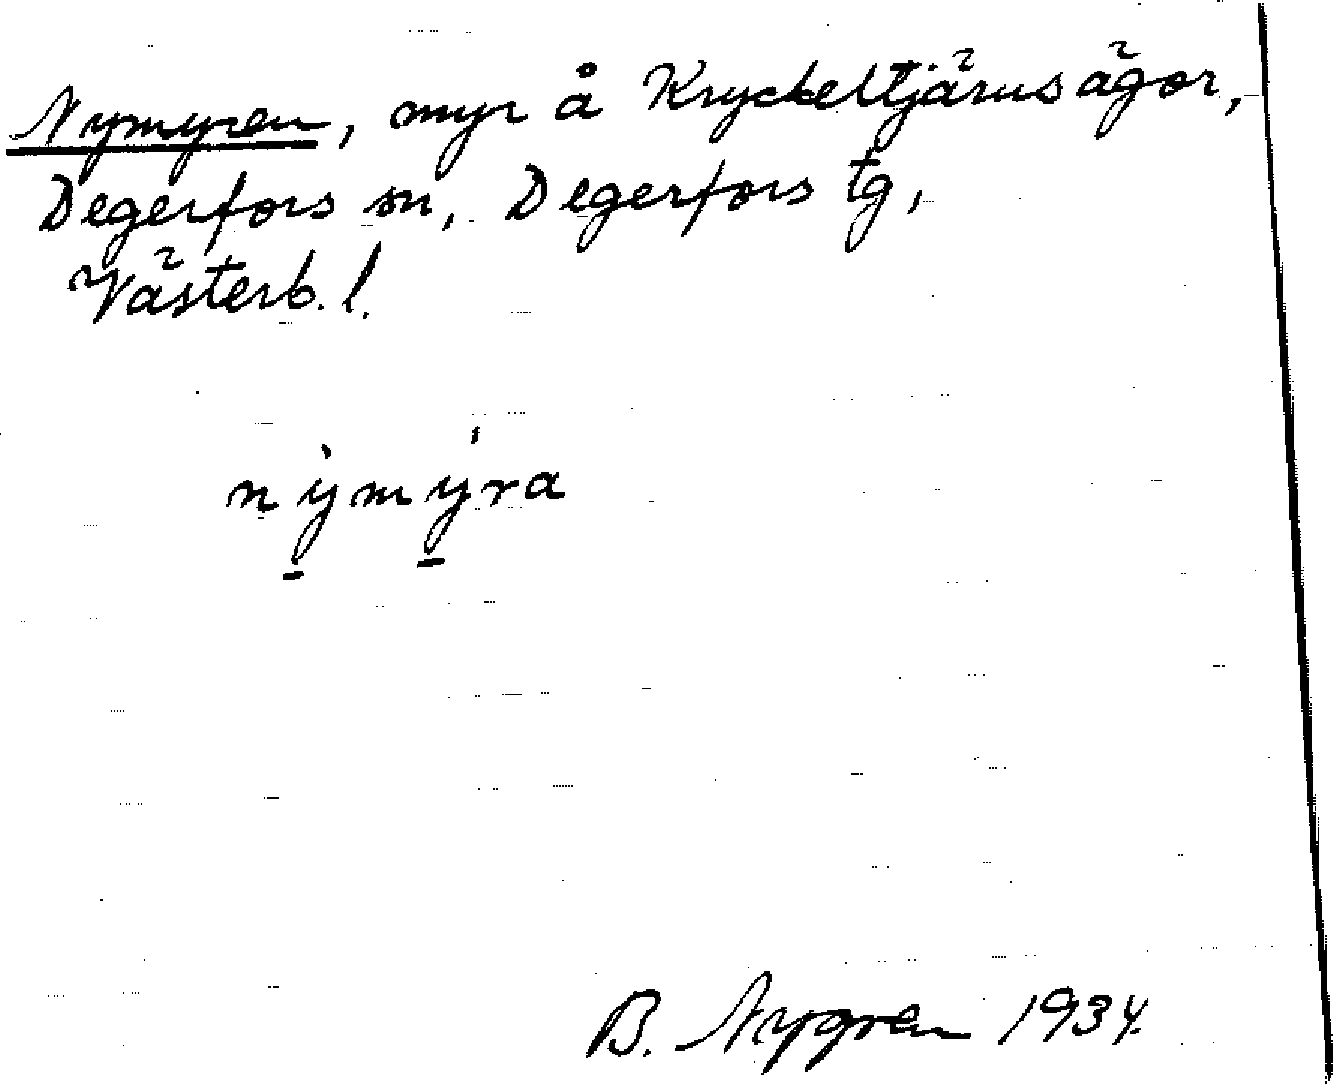 Nymyren, myr å Kryckeltjärns ägor,
Degerfors sn, Degerfors tg,
Västerb. l.
nỳ̱mý̱ra
B. Nygren 1934.